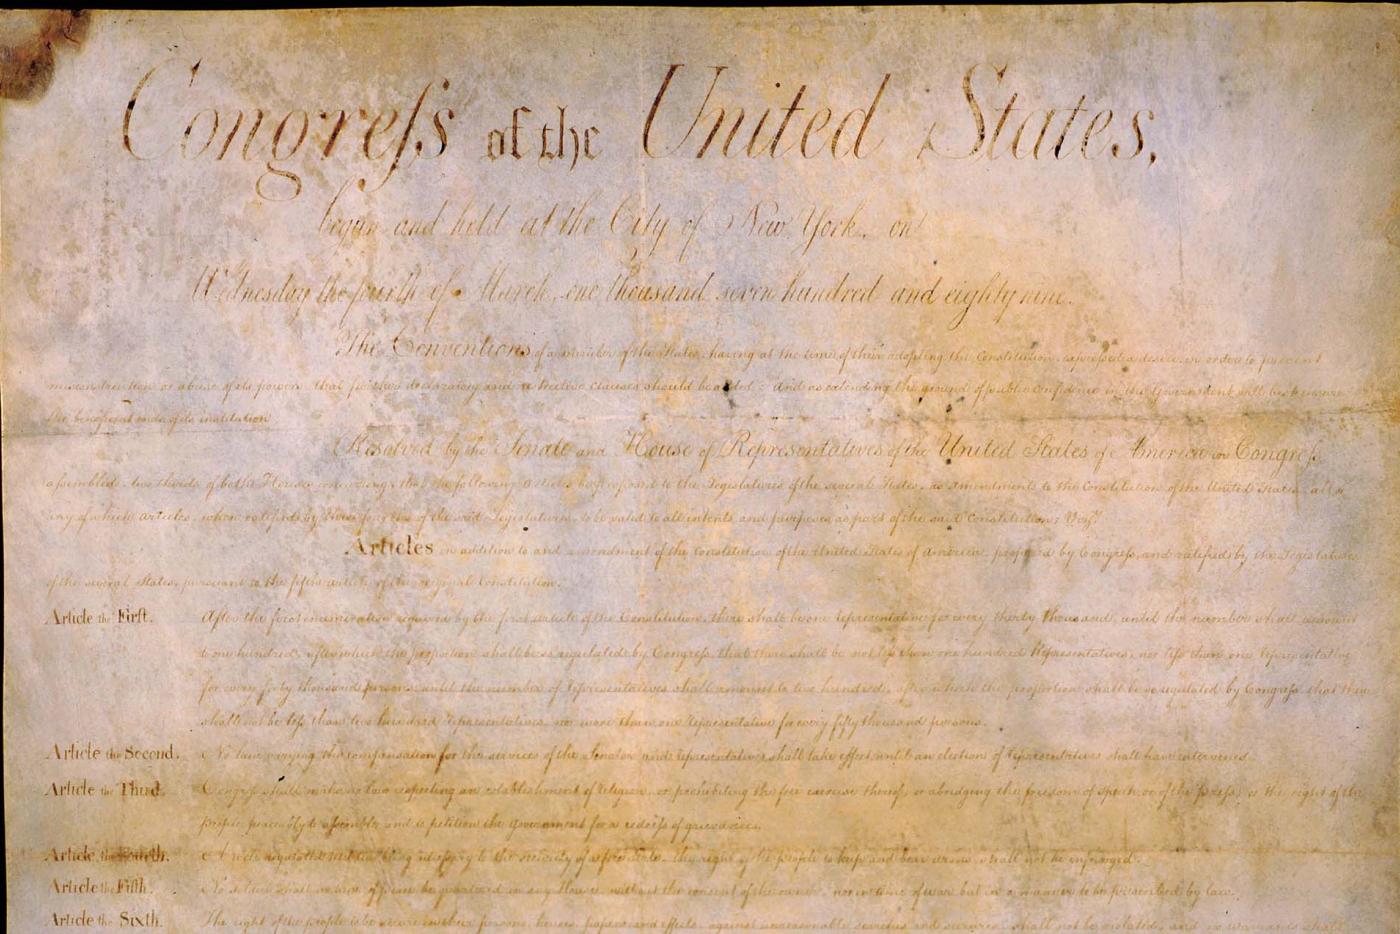 Congreſs of the United States,
begun and held at the City of New York, on
Wednesday the fourth of March, one thousand seven hundred and eighty nine.
The Conventions of a number of the States, having at the time of their adopting the Constitution, expressed a desire, in order to prevent
misconstruction or abuse of its powers, that further declaratory and restrictive clauses should be added: And as extending the ground of public confidence in the Government, will best ensure
the beneficent ends of its institution
Resolved by the Senate and House of Representatives of the United States of America in Congreſs
aſsembled, two thirds of both Houses concurring, that the following Articles be proposed to the Legislatures of the several States, as amendments to the Constitution of the United States, all or
any of which Articles, when ratified by three fourths of the said Legislatures, to be valid to all intents and purposes, as part of the said Constitution; Viz.t
Articles in addition to, and amendment of the Constitution of the United States of America, proposed by Congreſs, and ratified by the Legislatures
of the several States, pursuant to the fifth Article of the original Constitution.
Article the First. After the first enumeration required by the first Article of the Constitution, there shall be one Representative for every thirty thousand, until the number shall amount
to one hundred, after which, the proportion shall be so regulated by Congreſs, that there shall be not leſs than one hundred Representatives, nor leſs than one Representative
for every forty thousand persons, until the number of Representatives shall amount to two hundred, after which the proportion shall be so regulated by Congreſs, that there
shall not be leſs than two hundred Representatives, nor more than one Representative for every fifty thousand persons.
Article the Second. No law, varying the compensation for the services of the Senators and Representatives, shall take effect, until an election of Representatives shall have intervened.
Article the Third. Congreſs shall make no law respecting an establishment of religion, or prohibiting the free exercise thereof; or abridging the freedom of speech, or of the Preſs; or the right of the
people peaceably to aſsemble, and to petition the Government for a redreſs of grievances.
Article the Fourth. A well regulated militia, being neceſsary to the security of a free State, the right of the people to keep and bear arms, shall not be infringed.
Article the Fifth. No Soldier shall, in time of peace be quartered in any House, without the consent of the owner, nor in time of war, but in a manner to be prescribed by law.
Article the Sixth. The right of the people to be secure in their persons, houses, papers, and effects, against unreasonable searches and seizures, shall not be violated, and no warrants shall